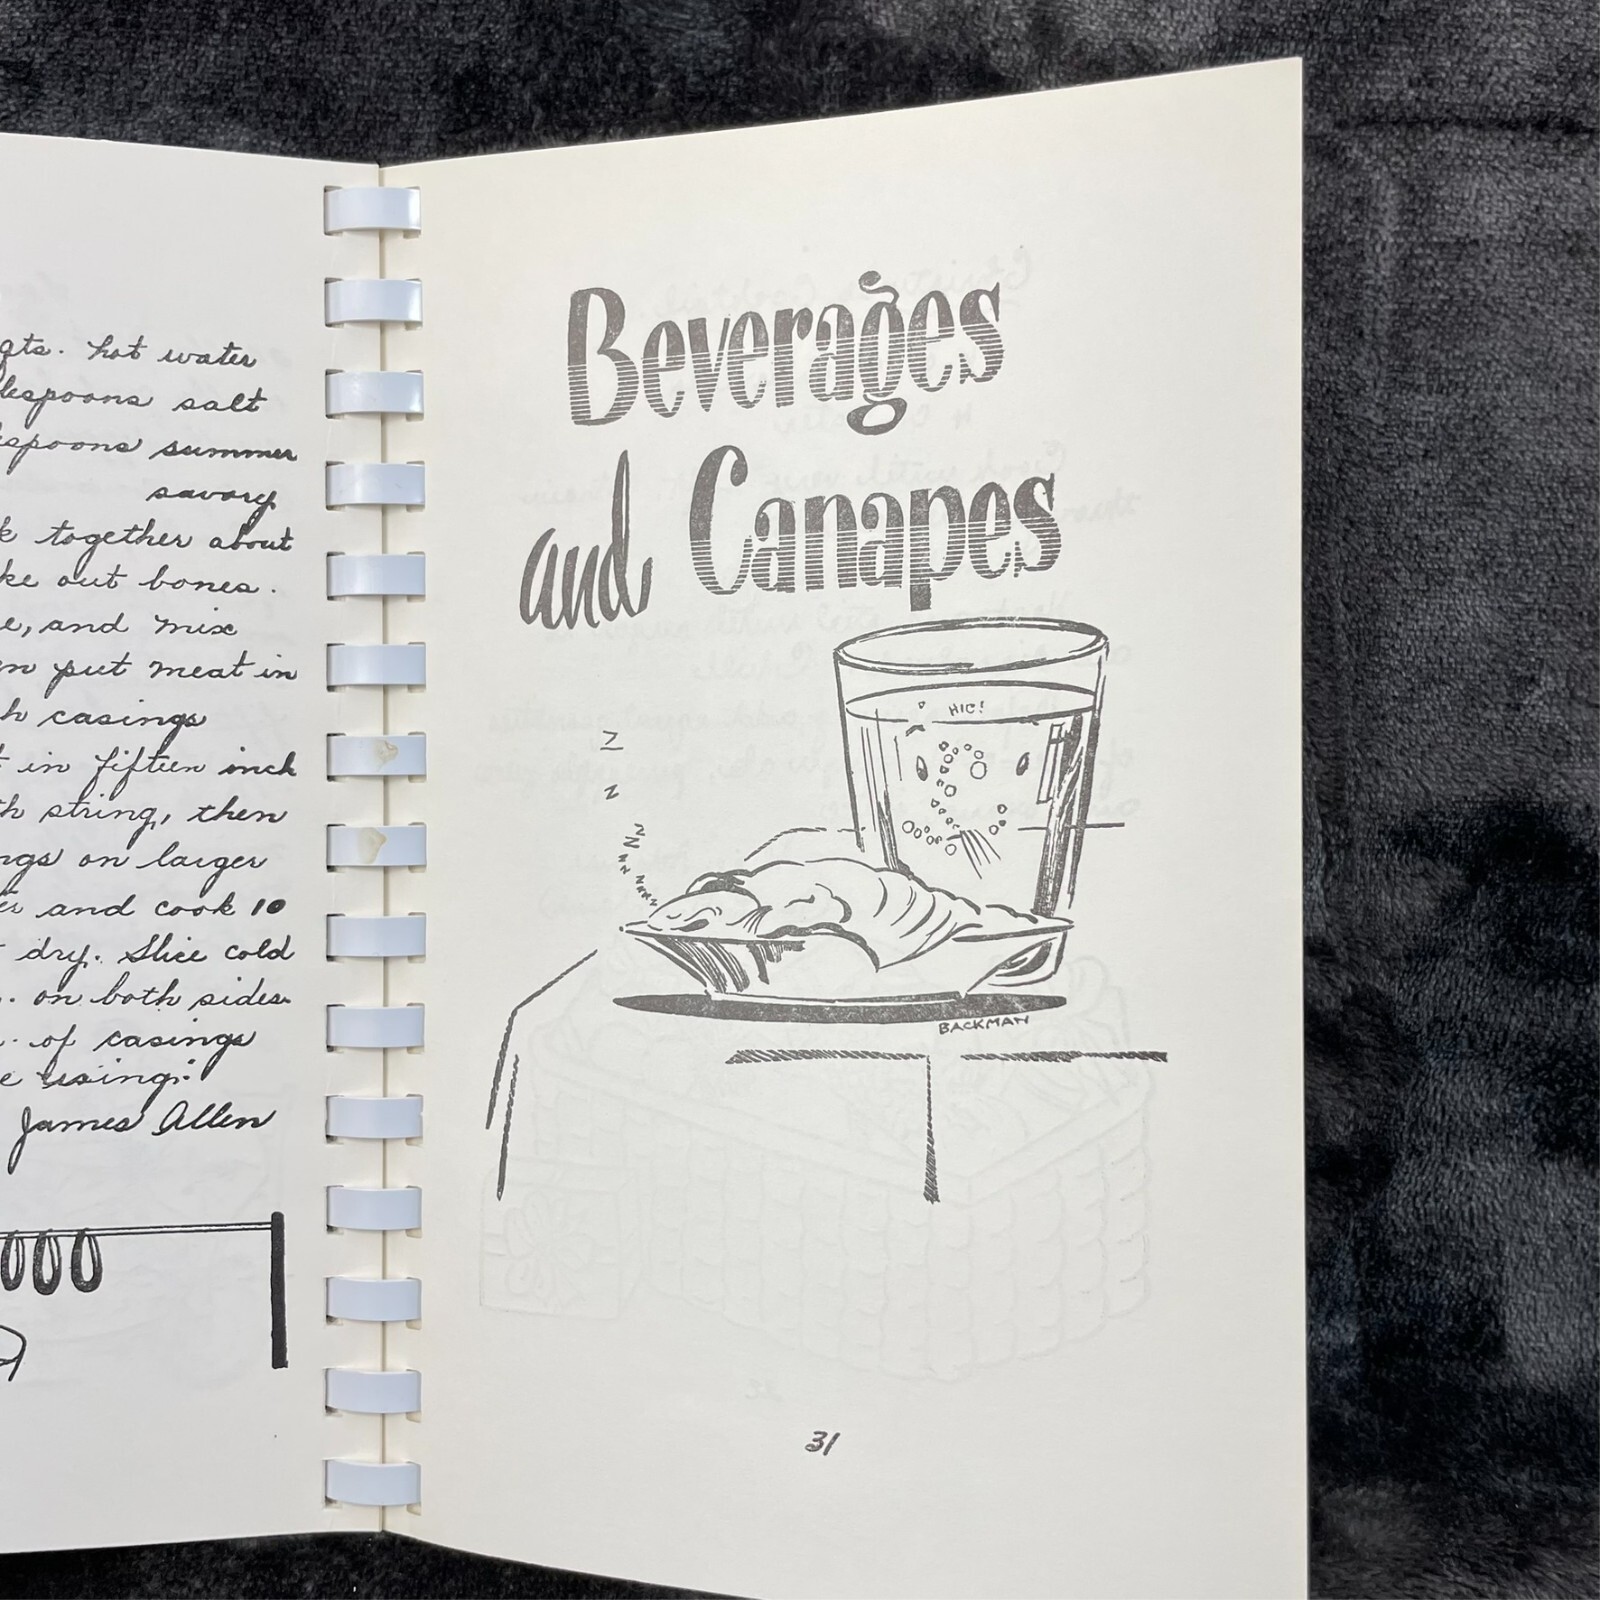 qts. hot water
lespoons salt
spoons summer
savory
together about
out bones.
and mix
put meat in
casings
in fifteen inch
string, then
on larger
and cook 10
dry. Slice cold
on both sides.
of casings
using."
James Allen
Beverages
and Canapes
HIC!
Z
Z
Z
Z
Z
Z
Z
BACKMAN
31